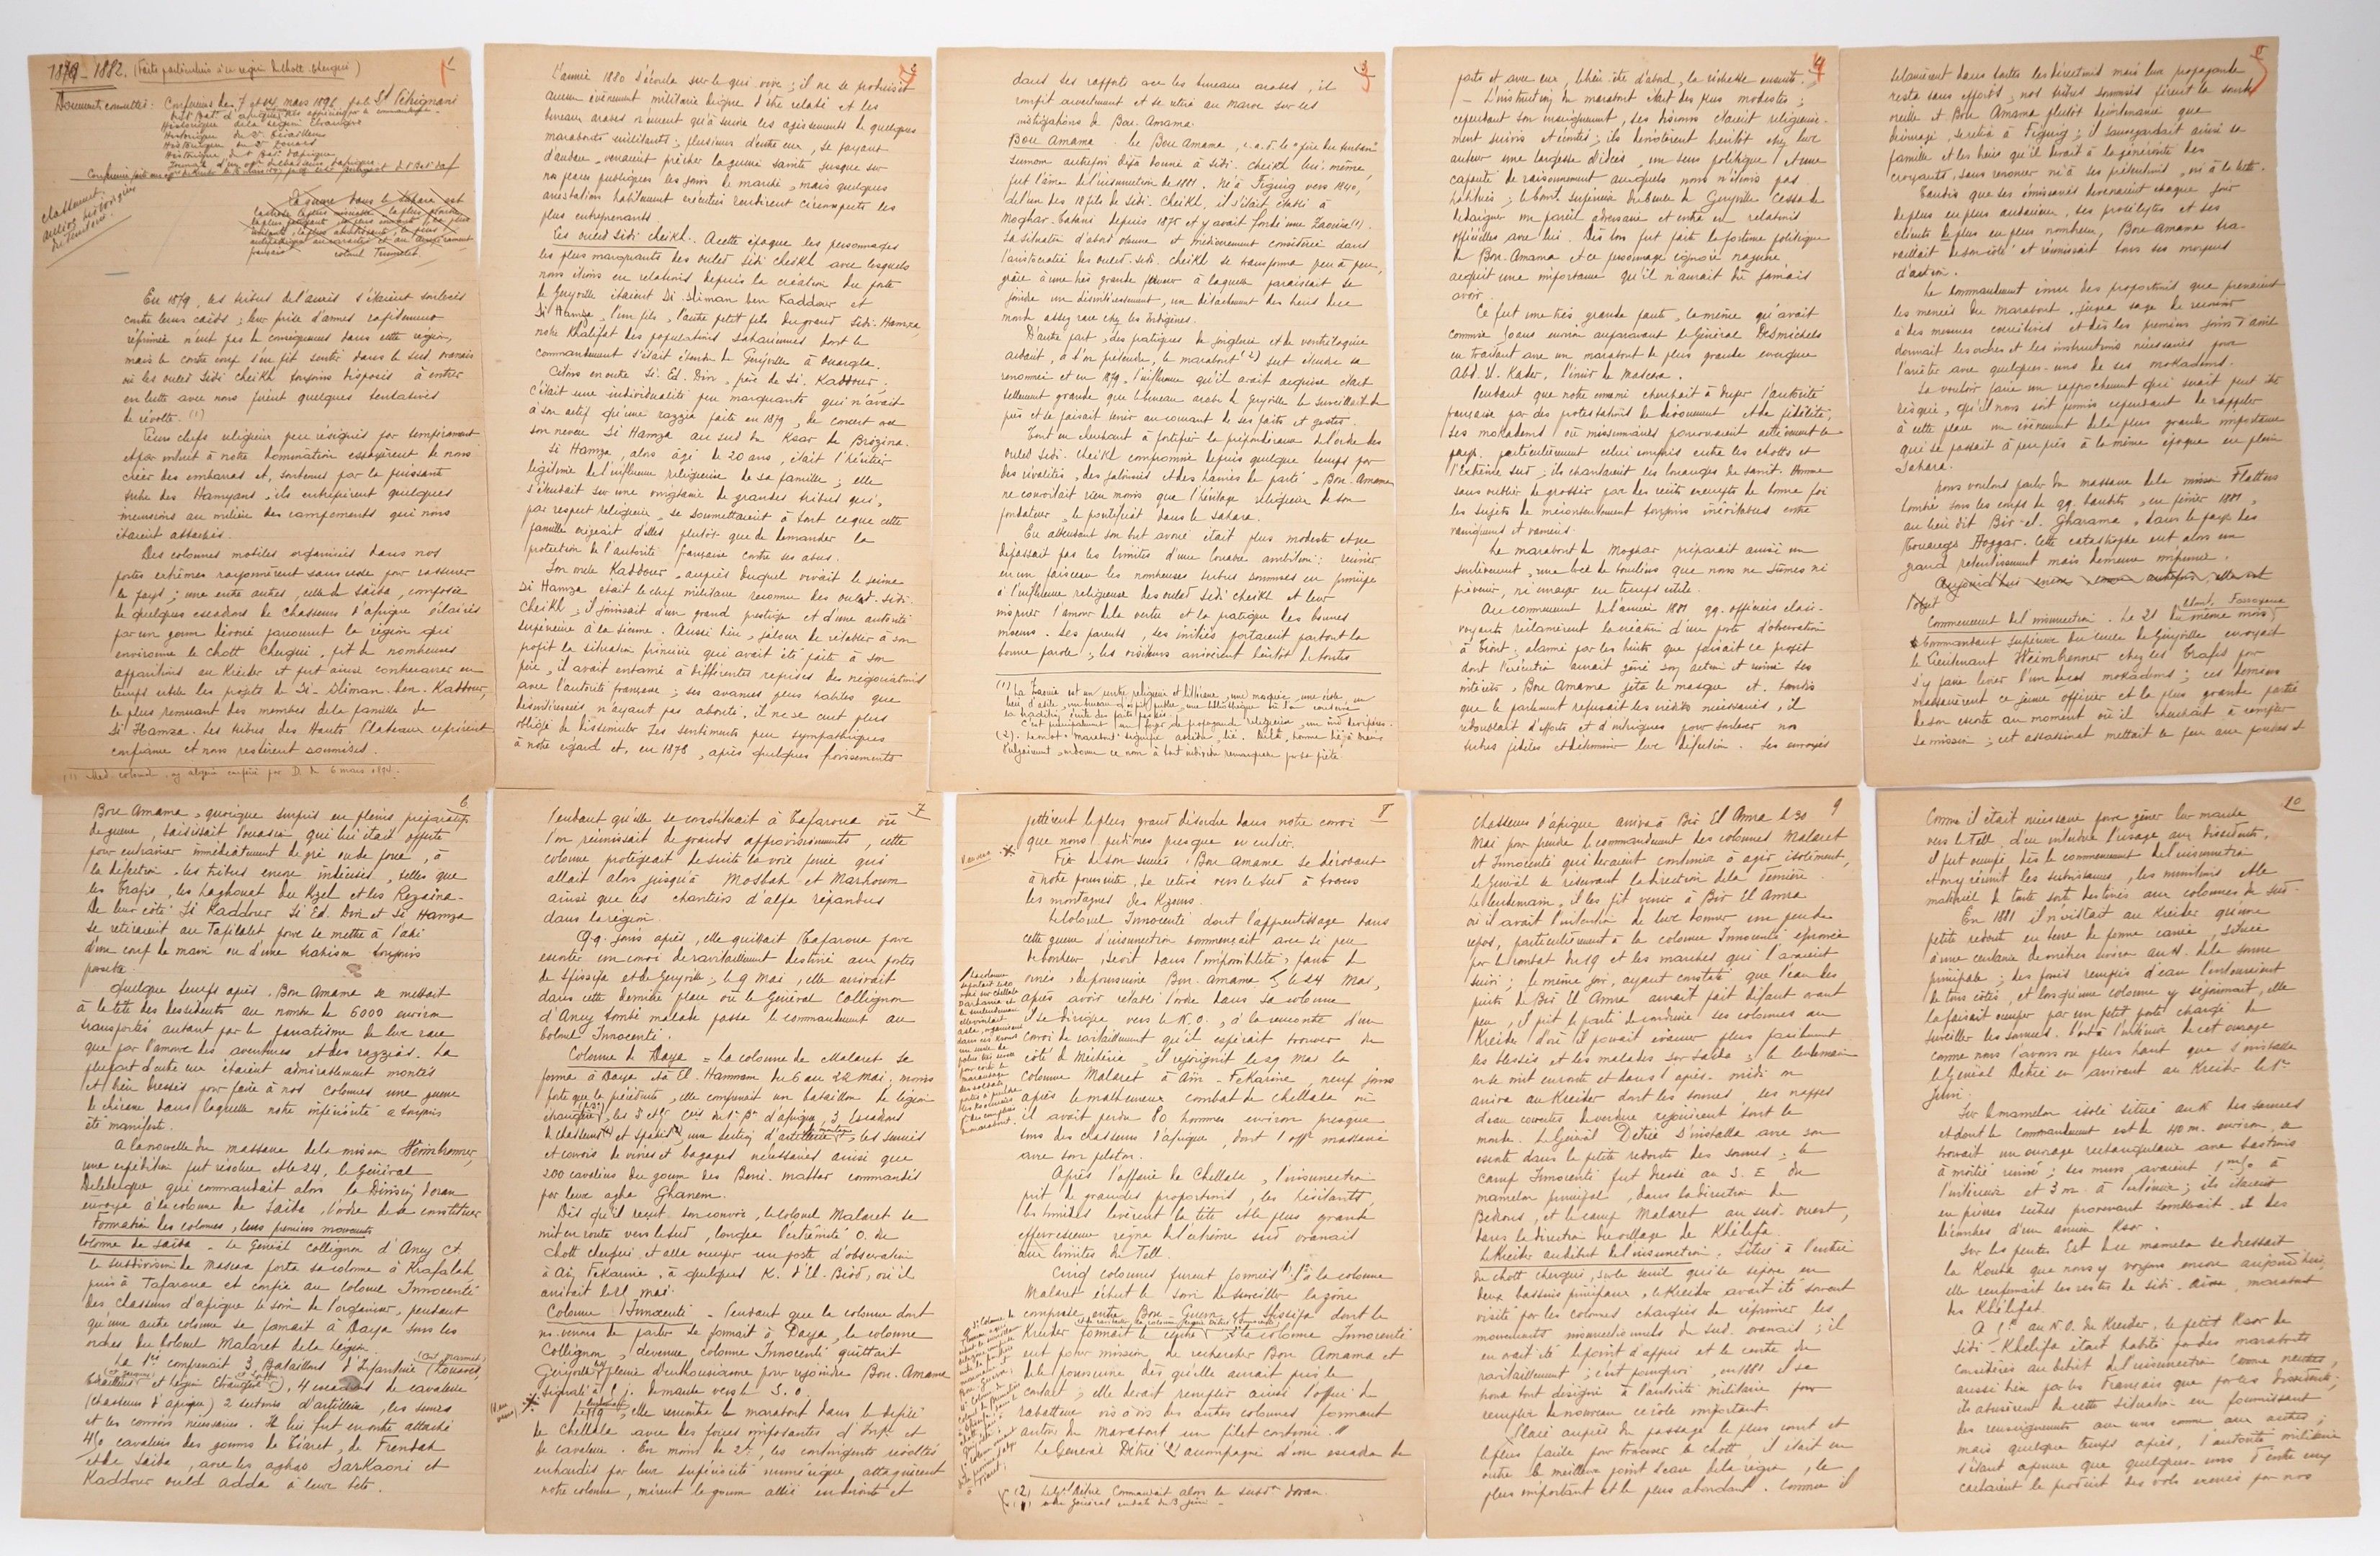 1879 - 1882. (Faits particuliers à la région du Chott Chergui)
Documents consultés : Conférences des 7 et 14 mars 1896 par le Lt Pérignani
Historique de la Légion Etrangère
Historique du 2e Tirailleurs
Historique du 2e Zouaves
Historique du 1er Bat. d'afrique
classement
La guerre dans le Sahara est
colonel Trumelet
En 1879, les tribus de l'aurès s'étaient soulevées
contre leurs caïds ; leur prise d'armes rapidement
réprimée n'eut pas de conséquences dans cette région,
mais le contre coup s'en fit sentir dans le sud oranais
où les ouled Sidi Cheikh toujours disposés à entrer
en lutte avec nous firent quelques tentatives
de révolte. (1)
Leurs chefs religieux peu résignés par tempérament
et par intérêt à notre domination essayèrent de nous
créer des embarras et, soutenus par la puissante
tribu des Hamyans, ils entreprirent quelques
incursions au milieu des campements qui nous
étaient attachés.
Des colonnes mobiles organisées dans nos
postes extrêmes rayonnèrent sans cesse pour rassurer
le pays ; une entre autres, celle de Saïda, composée
de quelques escadrons de chasseurs d'afrique éclairés
par un goum dévoué parcourut la région qui
environne le Chott Chergui, fit de nombreuses
apparitions au Kreider et put ainsi contrecarrer en
temps utile les projets de Si-Sliman-ben-Kaddour,
le plus remuant des membres de la famille de
Si Hamza. Les tribus des Hauts Plateaux reprirent
confiance et nous restèrent soumises.
2
L'année 1880 s'écoula sur le qui vive ; il ne se produisit
aucun événement militaire digne d'être relaté et les
bureaux arabes n'eurent qu'à suivre les agissements de quelques
marabouts militants ; plusieurs d'entre eux, se payant
d'audace, venaient prêcher la guerre sainte jusque sur
nos places publiques les jours de marché, mais quelques
arrestations habilement exécutées rendirent circonspects les
plus entreprenants.
Les ouled Sidi cheikh. A cette époque les personnages
les plus marquants des ouled Sidi Cheikh avec lesquels
nous étions en relations depuis la création du poste
de Géryville étaient Si Sliman ben Kaddour et
Si Hamza, l'un fils, l'autre petit fils du grand Sidi-Hamza,
notre Khalifat des populations sahariennes dont le
commandement s'était étendu de Géryville à Ouargla.
Citons en outre Si Ed. Din, père de Si. Kaddour ;
c'était une individualité peu marquante qui n'avait
à son actif qu'une razzia faite en 1879, de concert avec
son neveu Si Hamza au sud du Ksar de Brézina.
Si Hamza, alors âgé de 20 ans, était l'héritier
légitime de l'influence religieuse de sa famille ; elle
s'étendait sur une vingtaine de grandes tribus qui,
par respect religieux, se soumettaient à tout ce que cette
famille exigeait d'elles plutôt que de demander la
protection de l'autorité française contre ses abus.
Son oncle Kaddour, auprès duquel vivait le jeune
Si Hamza était le chef militaire reconnu des ouled-Sidi-
Cheikh ; il jouissait d'un grand prestige et d'une autorité
supérieure à la sienne. Aussi bien, jaloux de rétablir à son
profit la situation princière qui avait été faite à son
père, il avait entamé à différentes reprises des négociations
avec l'autorité française ; ses avances plus habiles que
désintéressées n'ayant pas abouti, il ne se crut plus
obligé de dissimuler ses sentiments peu sympathiques
à notre égard et, en 1878, après quelques froissements
3
dans ses rapports avec les bureaux arabes, il
rompit ouvertement et se retira au Maroc sur les
instigations de Bou-Amama.
Bou Amama. Le Bou Amama, c.à.d. le "père du turban"
surnom autrefois déjà donné à Sidi-Cheikh lui-même,
fut l'âme de l'insurrection de 1881. Né à Figuig vers 1840,
de l'un des 18 fils de Sidi-Cheikh, il s'était établi à
Moghar-Tatani depuis 1875 et y avait fondé une Zaouïa (1).
Sa situation d'abord obscure et médiocrement considérée dans
l'aristocratie des Ouled-Sidi-Cheikh se transforma peu à peu,
grâce à une très grande ferveur à laquelle paraissait se
joindre un désintéressement, un détachement des biens de ce
monde assez rare chez les Indigènes.
D'autre part, des pratiques de jonglerie et de ventriloquie
aidant, à s'en prétendre, le marabout (2) sut étendre sa
renommée et en 1879, l'influence qu'il avait acquise était
tellement grande que le bureau arabe de Géryville le surveillait de
près et se faisait tenir au courant de ses faits et gestes.
Tout en cherchant à fortifier la prépondérance de l'ordre des
Ouled-Sidi-Cheikh compromise depuis quelque temps par
des rivalités, des jalousies et des haines de parti, Bou-Amama
ne convoitait rien moins que l'héritage religieux de son
fondateur, le pontificat dans le Sahara.
En attendant son but avoué était plus modeste et ne
dépassait pas les limites d'une louable ambition : réunir
en un faisceau les nombreuses tribus soumises en principe
à l'influence religieuse des ouled Sidi Cheikh et leur
inspirer l'amour de la vertu et la pratique des bonnes
moeurs. Ses parents, ses initiés portaient partout la
bonne parole ; les visiteurs arrivèrent bientôt de toutes
(1) La Zaouïa est un centre religieux et littéraire, une mosquée, une école, un
(2). Le mot "marabout" signifie
4
parts et avec eux, le bien être d'abord, la richesse ensuite.
- L'instruction du marabout était des plus modestes ;
cependant son enseignement, ses sermons étaient religieuse-
ment suivis et écoutés ; ils dénotèrent bientôt chez leur
auteur une largesse d'idées, un sens politique et une
capacité de raisonnement auxquels nous n'étions pas
habitués ; le bout. supérieur du cercle de Géryville cessa de
dédaigner un pareil adversaire et entra en relations
officielles avec lui. Dès lors fut faite la fortune politique
de Bou-Amama et ce personnage ignoré naguère
acquit une importance qu'il n'aurait dû jamais
avoir.
Ce fut une très grande faute, la même qu'avait
commise 50 ans environ auparavant le Général Desmichels
en traitant avec un marabout de plus grande envergure
Abd-El-Kader, l'émir de Mascara.
Pendant que notre ennemi cherchait à duper l'autorité
française par des protestations de dévouement et de fidélité,
ses mokadems ou missionnaires parcouraient activement le
pays, particulièrement celui compris entre les chotts et
l'Extrême Sud ; ils chantaient les louanges du saint homme
sans oublier de grossir par des récits exempts de bonne foi
les sujets de mécontentement toujours inévitables entre
vainqueurs et vaincus.
Le marabout de Moghar préparait ainsi un
soulèvement, une levée de boucliers que nous ne sûmes ni
prévenir, ni enrayer en temps utile.
Au commencement de l'année 1881 qq. officiers clair-
voyants réclamèrent la création d'un poste d'observation
à Tiout ; alarmé par les bruits que faisait ce projet
dont l'exécution aurait gêné son action et ruiné ses
intérêts, Bou Amama jeta le masque et, tandis
que le parlement refusait les crédits nécessaires, il
redoublait d'efforts et d'intrigues pour soulever nos
tribus fidèles et déterminer leur défection. Ses envoyés
5
se lancèrent dans toutes les directions mais leur propagande
resta sans effets, nos tribus soumises firent la sourde
oreille et Bou Amama plutôt décontenancé que
découragé, se retira à Figuig ; il sauvegardait ainsi sa
famille et les biens qu'il devait à la générosité des
croyants, sans renoncer ni à ses prétentions, ni à la lutte.
Tandis que ses émissaires devenaient chaque jour
de plus en plus audacieux, ses prosélytes et ses
clients de plus en plus nombreux, Bou-Amama tra-
vaillait de son côté et réunissait tous ses moyens
d'action.
Le commandement ému des proportions que prenaient
les menées du marabout, jugea sage de recourir
à des mesures coercitives et dès les premiers jours d'avril
donnait les ordres et les instructions nécessaires pour
l'arrêter avec quelques-uns de ses mokadems.
Sans vouloir faire un rapprochement qui serait peut être
risqué, qu'il nous soit permis cependant de rappeler
à cette place un événement de la plus grande importance
qui se passait à peu près à la même époque en plein
Sahara.
Nous voulons parler du massacre de la mission Flatters
tombée sous les coups de qq. bandits, en février 1881,
au lieu dit Bir-el-Gharama, dans le pays des
Touaregs Hoggar. Cette catastrophe eut alors un
grand retentissement mais demeura impunie.
Commencement de l'insurrection. Le 21 du même mois
le Commandant Supérieur du cercle de Géryville envoyait
le Lieutenant Weinbrenner chez les Trafis pour
s'y faire livrer l'un des mokadems ; ces derniers
massacrèrent ce jeune officier et la plus grande partie
de son escorte au moment où il cherchait à remplir
sa mission ; cet assassinat mettait le feu aux poudres et
6
Bou Amama, quoique surpris en pleins préparatifs
de guerre, saisissait l'occasion qui lui était offerte
pour entraîner immédiatement de gré ou de force, à
la défection les tribus encore indécises, telles que
les Trafis, les Laghouat du Kzel et les Rezaïna.
De leur côté Si Kaddour Si Ed. Din et Si Hamza
se retiraient au Tafilalet pour se mettre à l'abri
d'un coup de main ou d'une trahison toujours
possible.
Quelque temps après, Bou Amama se mettait
à la tête des dissidents au nombre de 6000 environ
transportés autant par le fanatisme de leur race
que par l'amour des aventures et des razzias. La
plupart d'entre eux étaient admirablement montés
et bien dressés pour faire à nos colonnes une guerre
de chicane dans laquelle notre infériorité a toujours
été manifeste.
A la nouvelle du massacre de la mission Weinbrenner,
une expédition fut résolue et le 24, le Général
Delebecque qui commandait alors la Division d'oran
envoya à la colonne de Saïda, l'ordre de se constituer.
Formation des colonnes, leurs premiers mouvements
Colonne de Saïda - Le Général Collignon d'Ancy Ct
la subdivision de Mascara porta sa colonne à Krafalah
puis à Tafaroua et confia au Colonel Innocenti
des chasseurs d'afrique le soin de l'organiser, pendant
qu'une autre colonne se formait à Daya sous les
ordres du Colonel Malaret de la légion.
La 1re comprenait 3 Bataillons d'Infanterie (Zouaves,
Tirailleurs et légion Etrangère), 4 escadrons de cavalerie
(chasseurs d'afrique) 2 sections d'artillerie, les
et les convois nécessaires. Il lui fut en outre attaché
450 cavaliers des goums de Tiaret, de Frendah
et de Saïda, avec les aghas Sarkaoni et
Kaddour ould adda à leur tête.
7
Pendant qu'elle se constituait à Tafaroua où
l'on réunissait de grands approvisionnements, cette
colonne protégeait de suite la voie ferrée qui
allait alors jusqu'à Mosbah et Marhoum
ainsi que les chantiers d'alfa répandus
dans la région.
Qq. jours après, elle quittait Tafaroua pour
escorter un convoi de ravitaillement destiné aux postes
de Sfissifa et de Géryville ; le 9 Mai, elle arrivait
dans cette dernière place où le Général Collignon
d'Ancy tombé malade passa le commandement au
Colonel Innocenti.
Colonne de Daya = La colonne de Malaret se
forma à Daya et à El-Hammam du 6 au 22 mai ; moins
forte que la précédente, elle comprenait un bataillon de légion
étrangère, les 3e et 4e Cies du 1er Bon d'afrique, 3 Escadrons
de chasseurs et spahis, une section d'artillerie, les services
et convois de vivres et bagages nécessaires ainsi que
200 cavaliers du goum des Beni-mathar commandés
par leur agha Ghanem.
Dès qu'il reçut son convoi, le Colonel Malaret se
mit en route vers le sud, longea l'extrémité O. du
chott chergui et alla occuper un poste d'observation
à Aïn Fekarine, à quelques K. d'El-Biod, où il
arrivait le 24 mai.
Colonne Innocenti - Pendant que la colonne dont
ns. venons de parler se formait à Daya, la colonne
Collignon, devenue colonne Innocenti quittait
Géryville pleine d'enthousiasme pour rejoindre Bou-Amama
signalé à 1 j. de marche vers le S.O.
Le 19, elle rencontra le marabout dans le défilé
de Chellala avec des forces imposantes d'Infie et
de cavalerie. En moins de 2h, les contingents révoltés
enhardis par leur supériorité numérique attaquèrent
notre colonne, mirent le goum allié en déroute et
8
jetèrent le plus grand désordre dans notre convoi
que nous perdîmes presque en entier.
Fier de son succès, Bou Amama se dérobant
à notre poursuite, se retira vers le sud à travers
les montagnes des Kzours.
Le Colonel Innocenti dont l'apprentissage dans
cette guerre d'insurrection commençait avec si peu
de bonheur, se vit dans l'impossibilité, faute de
vivres, de poursuivre Bou-Amama ; le 24 mai,
après avoir rétabli l'ordre dans sa colonne
il se dirigea vers le N.O., à la rencontre d'un
convoi de ravitaillement qu'il espérait trouver du
côté de Mécheria, il rejoignit le 29 mai la
colonne Malaret à Aïn-Fekarine, neuf jours
après le malheureux combat de Chellala où
il avait perdu 80 hommes environ presque
tous des chasseurs d'afrique, dont 1 offr massacré
avec son peloton.
Après l'affaire de Chellala, l'insurrection
prit de grandes proportions, les hésitants,
les timides levèrent la tête et la plus grande
effervescence régna de l'extrême sud oranais
aux limites du Tell.
Cinq colonnes furent formées : 1° à la colonne
Malaret échut le soin de surveiller la zone
comprise entre Bou-Guern et Sfissifa dont le
Kreider formait le centre ; la colonne Innocenti
eut pour mission de rechercher Bou Amama et
de le poursuivre dès qu'elle aurait pris le
contact ; elle devait remplir ainsi l'office de
rabatteur vis à vis des autres colonnes formant
autour du marabout un filet continu.
Le Général Détrie (2) accompagné d'un escadron de
(2) Le Gal Détrie commandait alors la subdon d'oran.
9
Chasseurs d'afrique arriva à Bir El Amra le 30
Mai pour prendre le commandement des colonnes Malaret
et Innocenti qui devaient continuer à agir isolément,
le Général se réservant la direction de la dernière.
Le lendemain, il les fit venir à Bir El Amra
où il avait l'intention de leur donner un peu de
repos, particulièrement à la colonne Innocenti éprouvée
par le combat du 19 et les marches qui l'avaient
suivi ; le même jour, ayant constaté que l'eau des
puits de Bir El Amra aurait fait défaut avant
peu, il prit le parti de conduire ses colonnes au
Kreider d'où il pouvait évacuer plus facilement
les blessés et les malades sur Saïda ; le lendemain
on se mit en route et dans l'après-midi on
arriva au Kreider dont les sources, les nappes
d'eau couvertes de verdure réjouirent tout le
monde. Le Général Détrie s'installa avec son
escorte dans la petite redoute des sources ; le
camp Innocenti fut dressé au S.E du
mamelon principal, dans la direction de
Bedrous, et le camp Malaret au sud-ouest,
dans la direction du village de Khélifa.
Le Kreider au début de l'insurrection. Situé à l'entrée
du chott chergui, sur le seuil qui se sépare en
deux bassins principaux, le Kreider avait été souvent
visité par les colonnes chargées de réprimer les
mouvements insurrectionnels du sud-oranais ; il
en avait été le point d'appui et le centre de
ravitaillement ; c'est pourquoi, en 1881 il se
trouva tout désigné à l'autorité militaire pour
remplir de nouveau ce rôle important.
Placé auprès du passage le plus court et
le plus facile pour traverser le chott, il était en
outre le meilleur point d'eau de la région, le
plus important et le plus abondant. Comme il
10
Comme il était nécessaire pour gêner leur marche
vers le Tell, d'en interdire l'usage aux dissidents,
il fut occupé dès le commencement de l'insurrection
et on y réunit les subsistances, les munitions et le
matériel de toute sorte destinés aux colonnes du sud.
En 1881 il n'existait au Kreider qu'une
petite redoute en terre de forme carrée, située
à une centaine de mètres environ au N. de la source
principale ; des fossés remplis d'eau l'entouraient
de tous côtés, et lorsqu'une colonne y séjournait, elle
la faisait occuper par un petit poste chargé de
surveiller les sources. C'est à l'intérieur de cet ouvrage
comme nous l'avons vu plus haut que s'installa
le Général Détrie en arrivant au Kreider le 1er
Juin.
Sur le mamelon isolé situé au N. des sources
et dont le commandement est de 40 m. environ, se
trouvait un ouvrage rectangulaire avec bastions
à moitié ruiné ; ses murs avaient 1m50 à
l'intérieur et 3 m. à l'extérieur ; ils étaient
en pierres sèches provenant
décombres d'un ancien Ksar.
Sur les pentes Est du mamelon se dressait
la Kouba que nous y voyons encore aujourd'hui,
elle renfermait les restes de Sidi-Aïssa, marabout
des Khélifat.
A 1K au N.O. du Kreider, le petit Ksar de
Sidi-Khalifa était habité par des marabouts
considérés au début de l'insurrection comme neutres,
aussi bien par les Français que par les dissidents ;
ils abusèrent de cette situation en fournissant
des renseignements aux uns comme aux autres ;
mais quelque temps après, l'autorité militaire
s'étant aperçue que quelques-uns d'entre eux
cachaient le produit des vols exercés par nos